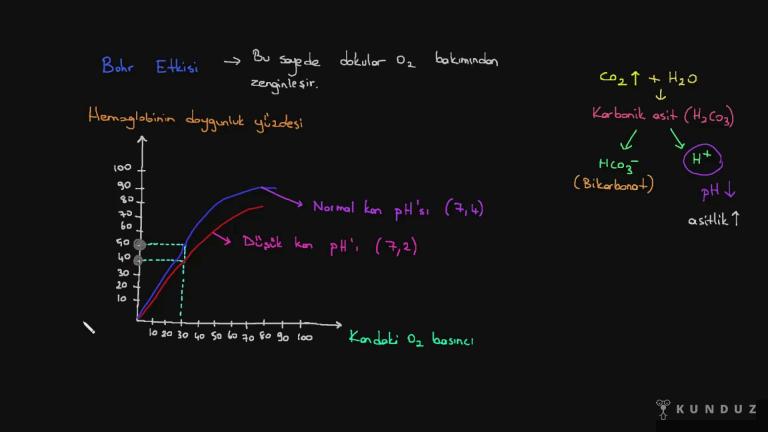 Bohr Etkisi → Bu sayede dokular O₂ bakımından
zenginleşir.
Hemoglobinin doygunluk yüzdesi
100
90
80
70
60
50
40
30
20
10
10 20 30 40 50 60 70 80 90 100
Kandaki O₂ basıncı
Normal kan pH'sı (7,4)
Düşük kan pH'ı (7,2)
CO₂ ↑ + H₂O
Karbonik asit (H₂CO₃)
HCO₃⁻
(Bikarbonat)
H⁺
pH ↓
asitlik ↑
KUNDUZ